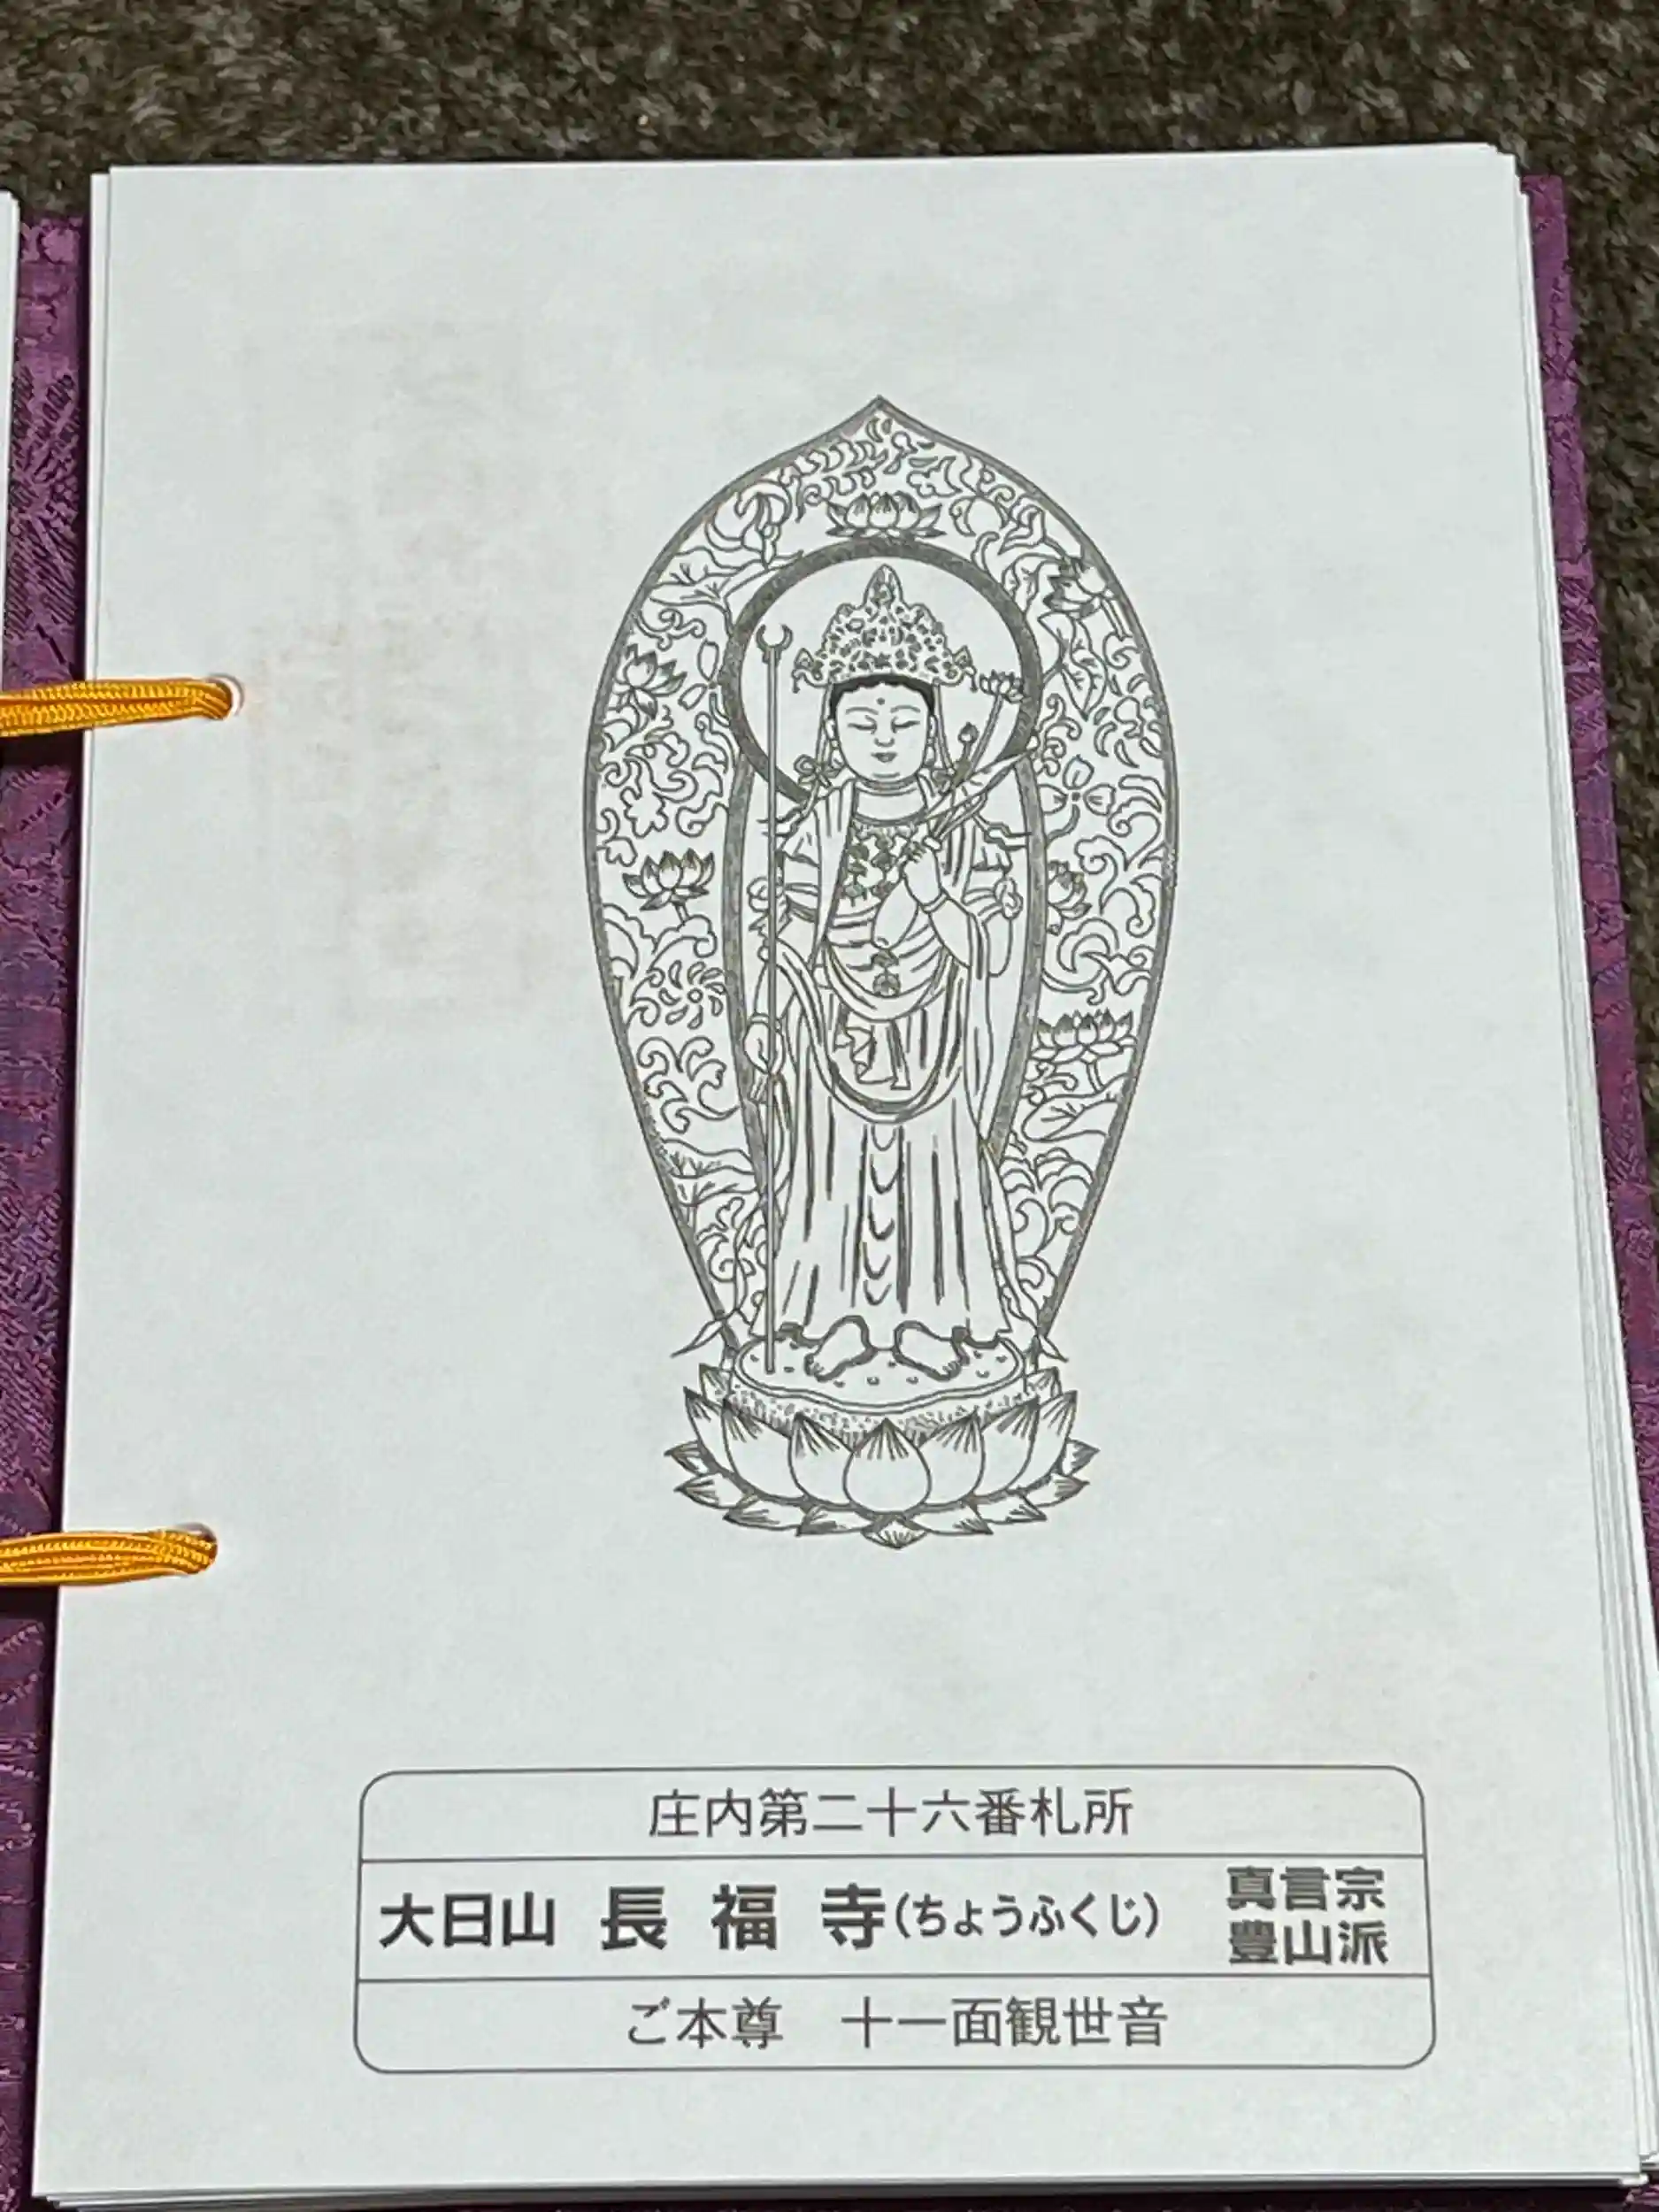 庄内第二十六番札所
大日山 長福寺(ちょうふくじ) 真言宗
豊山派
ご本尊 十一面観世音